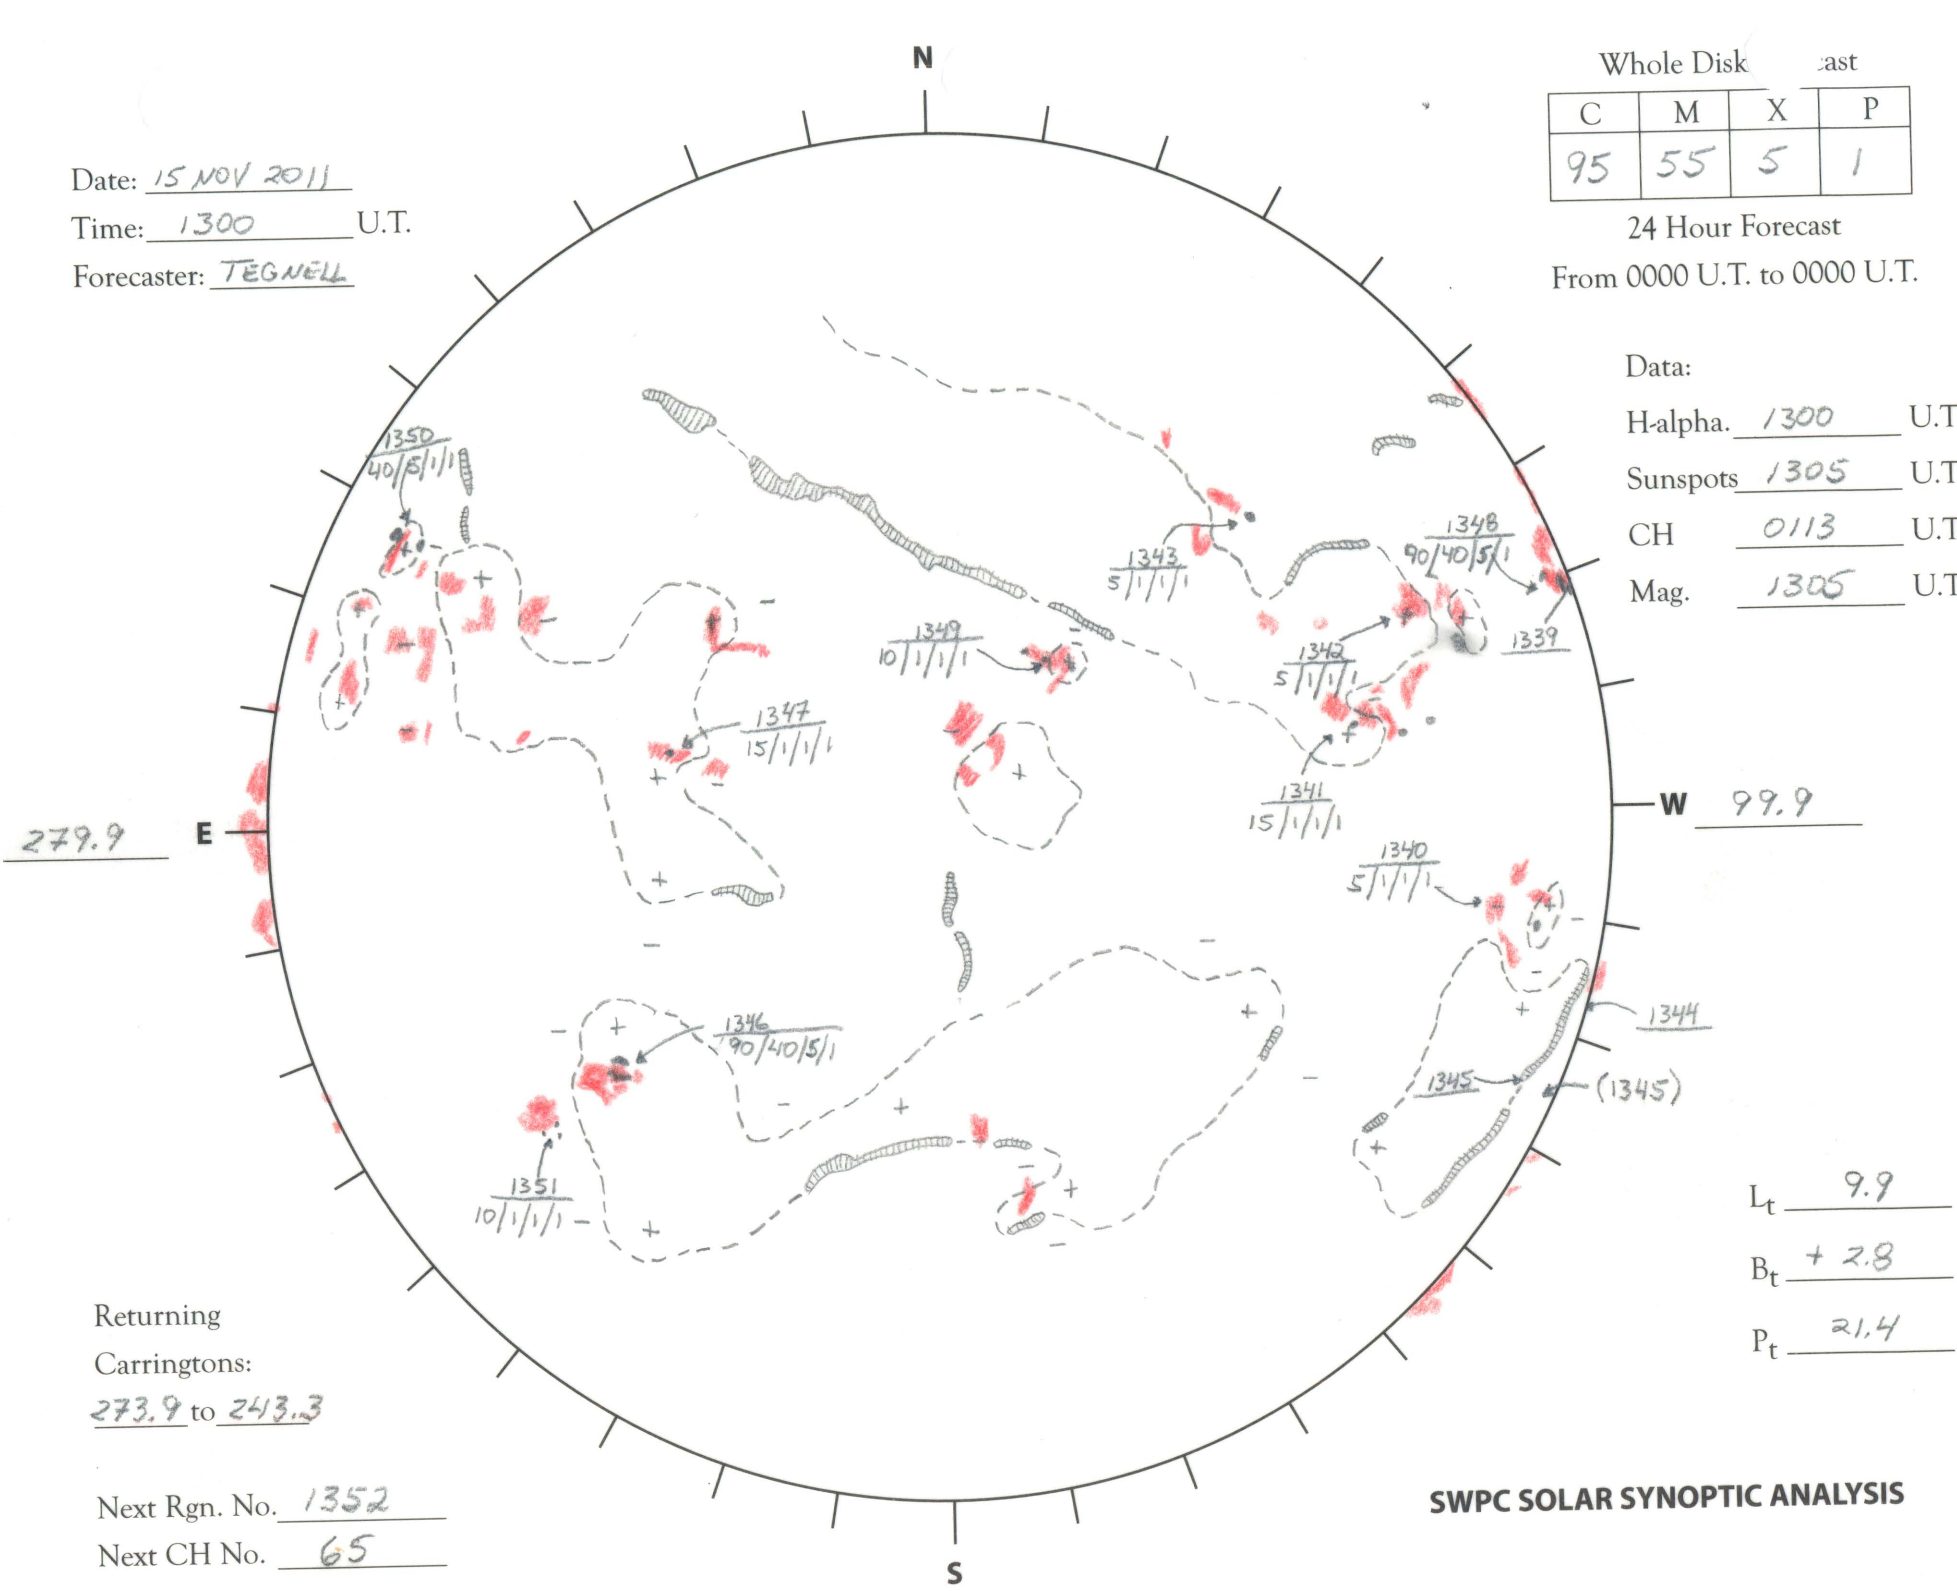 N
Whole Disk ast
C M X P
95 55 5 1
24 Hour Forecast
From 0000 U.T. to 0000 U.T.
Date: 15 NOV 2011
Time: 1300 U.T.
Forecaster: TEGNELL
Data:
H-alpha. 1300 U.T
Sunspots 1305 U.T
CH 0113 U.T
Mag. 1305 U.T
1350
40/5/1/1
1348
90/40/5/1
1343
5/1/1/1
1339
1349
10/1/1/1
1342
5/1/1/1
1347
15/1/1/1
1341
15/1/1/1
279.9 E
W 99.9
1340
5/1/1/1
1344
1346
90/40/5/1
1345
(1345)
1351
10/1/1/1
Lt 9.9
Bt + 2.8
Pt 21.4
Returning
Carringtons:
273.9 to 243.3
Next Rgn. No. 1352
Next CH No. 65
SWPC SOLAR SYNOPTIC ANALYSIS
S